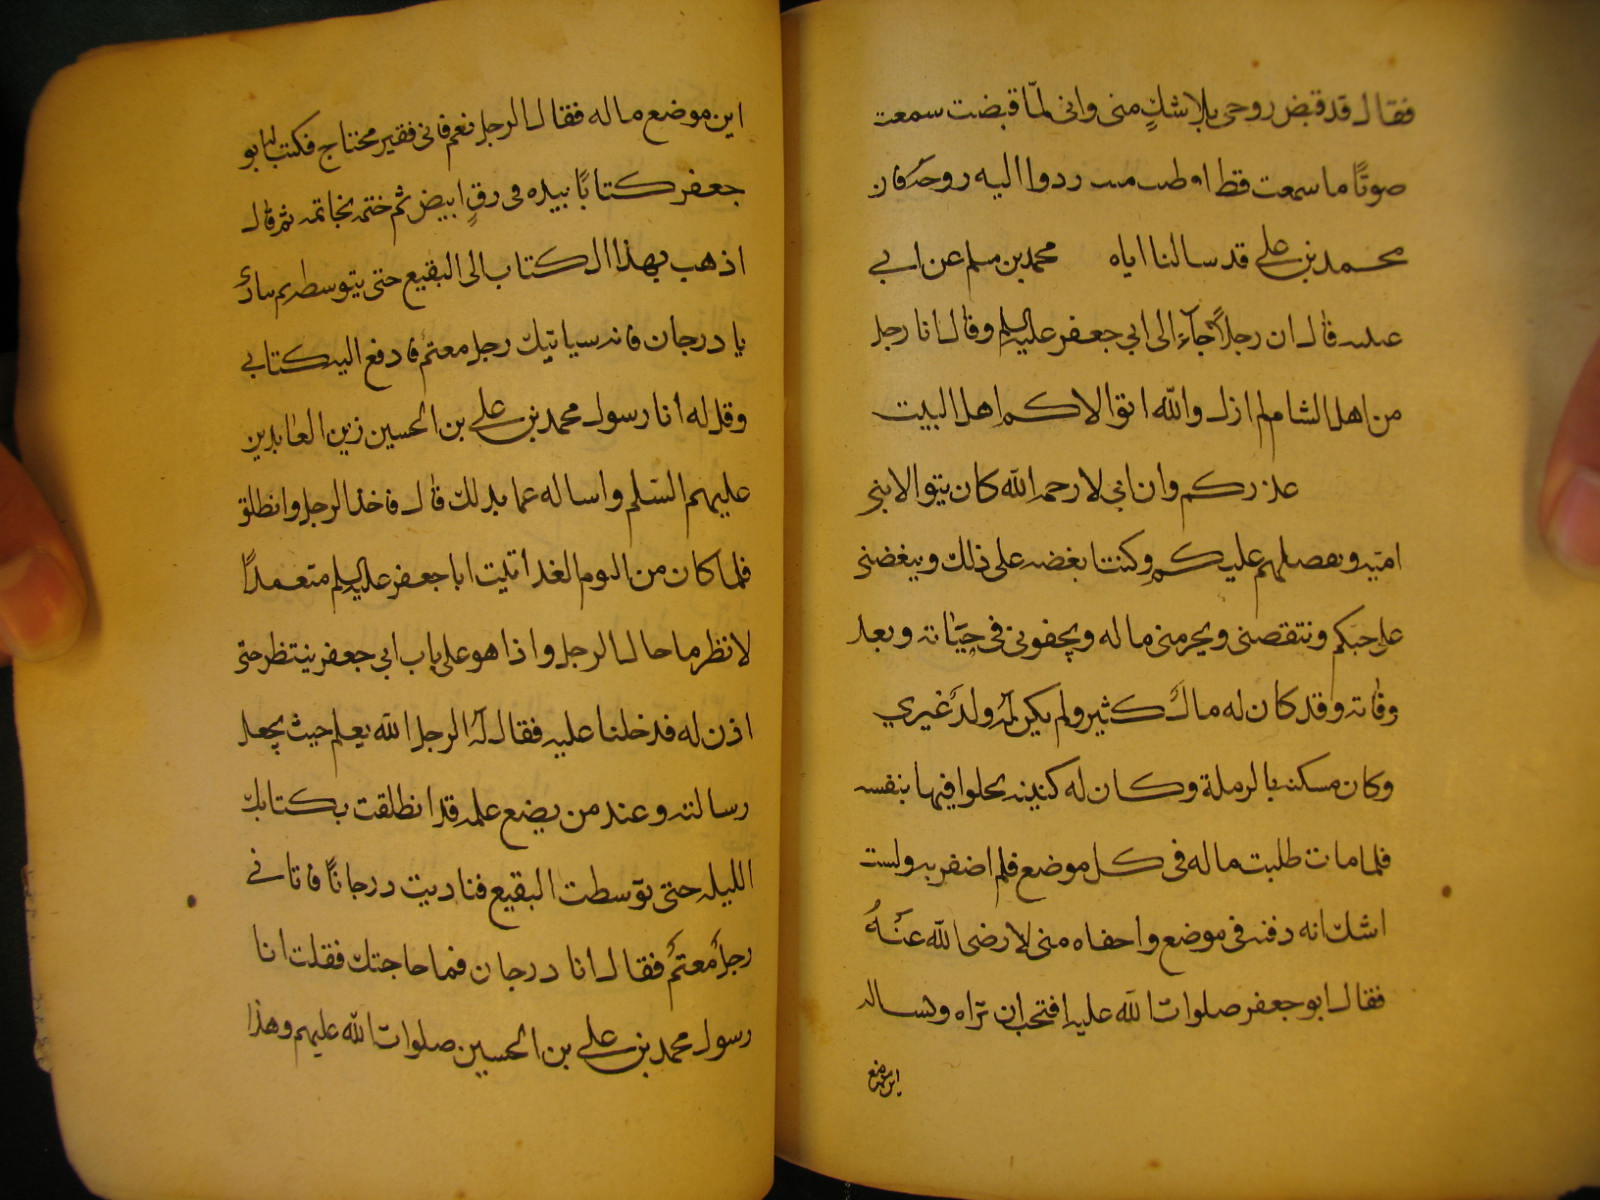 فقال قد قبض روحي بلا شكٍ مني واني لمّا قبضت سمعت
صوتًا ما سمعت قط اطيب منه ردوا اليه روحه كان
محمد بن علي قد سالنا اياه محمد بن مسلم عن ابي
عيينه قال ان رجلاً جآء الى ابي جعفر عليه السلم وقال انا رجل
من اهل الشام لم ازل والله اتوالاكم اهل البيت
عذركم وان ابي لا رحمه الله كان يتوالا بني
اميه ويفضلهم عليكم وكنت ابغضه على ذلك ويبغضني
على حبكم وينتقصني ويحرمني ماله ويجفوني في حيَاته وبعد
وفاته وقد كان له مالٌ كثير ولم يكن له ولدٌ غيري
وكان مسكنه بالرملة وكان له كنينه يخلوا فيها بنفسه
فلما مات طلبت ماله في كل موضع فلم اضفر به ولست
اشك انه دفنه في موضع واخفاه مني لا رضي الله عَنهُ
فقال ابو جعفر صلوات الله عليه افتحب ان تراه وتساله
اين موضع
اين موضع ماله فقال الرجل نعم فاني فقير محتاج فكتب له ابو
جعفر كتابًا بيده في رقٍ ابيض ثم ختمه بخاتمه ثم قال
اذهب بهذا الكتاب الى البقيع حتى تتوسطه ثم نادِ
يا درجان فانه سياتيك رجل معتم فادفع اليه كتابي
وقل له انا رسول محمد بن علي بن الحسين زين العابدين
عليهم السَلم واساله عما بدلك قال فاخذ الرجل وانطلق
فلما كان من اليوم الغد اتيت ابا جعفر عليه السلم متعمدًا
لانظر ما حال الرجل واذا هو على باب ابي جعفر ينتظر حتى
اذن له فدخلنا عليه فقال له الرجل الله يعلم حيث يجعل
رسالته وعند من يضع علمه قد انطلقت بكتابك
الليله حتى توسطت البقيع فناديت درجانًا فاتاني
رجلٌ معتمٌ فقال انا درجان فما حاجتك فقلت انا
رسول محمد بن علي بن الحسين صلوات الله عليهم وهذا